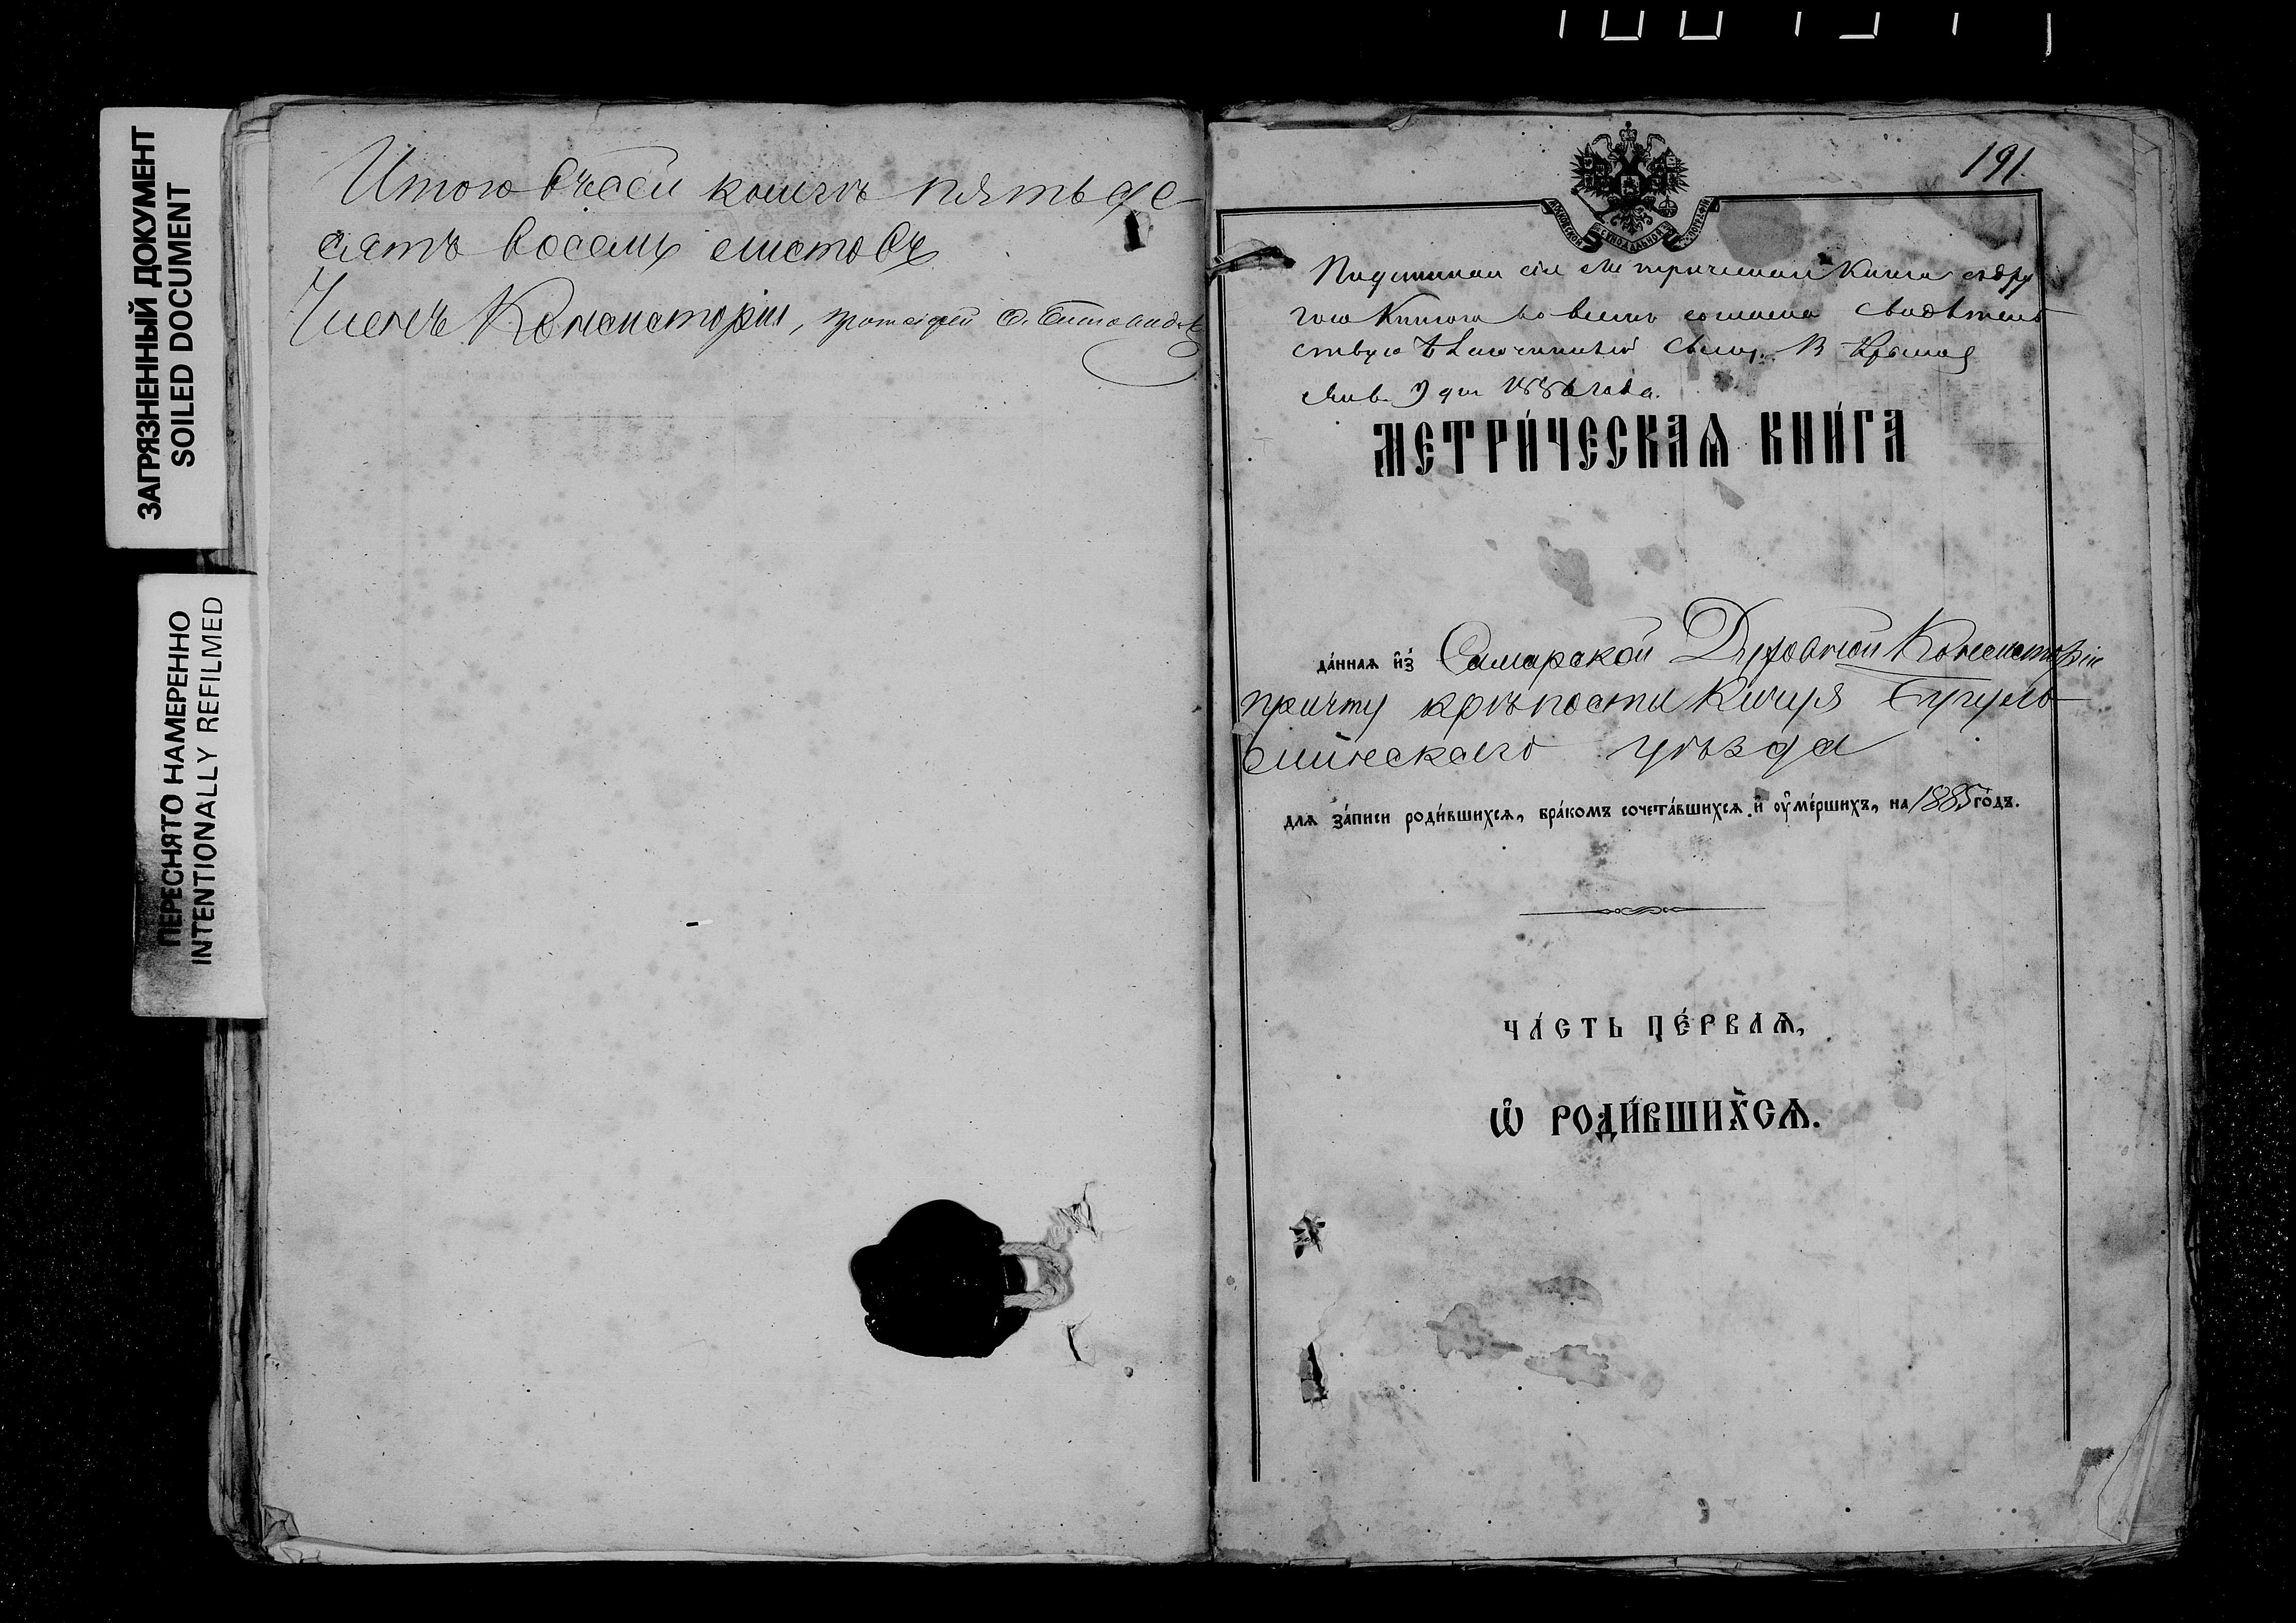 ЗАГРЯЗНЕННЫЙ ДОКУМЕНТ
SOILED DOCUMENT
ПЕРЕСНЯТО НАМЕРЕННО
INTENTIONALLY REFILMED
Итого въ сей книгѣ пятьде-
сятъ восемь листовъ
Членъ Консисторіи, протоіерей
191.
МОСКОВСКОЙ СѴНОДАЛЬНОЙ ТИПОГРАФІИ
Подлинная сія метрическая книга съ дру
гою книгою во всемъ согласна свидѣтель
ствую
1886 года.
МЕТРИ́ЧЕСКАѦ КНИ́ГА
да́ннаѧ и҆з̾ Самарской Духовной Консисторіи
причту крѣпости Кичуя Бугуль-
минскаго уѣзда
длѧ за́писи роди́вшихсѧ, бра́комъ сочета́вшихсѧ и҆ ᲂу҆ме́ршихъ, на 1885 го́дъ.
ЧА́СТЬ ПЕ́РВАѦ,
Ѽ РОДИ́ВШИХСѦ.